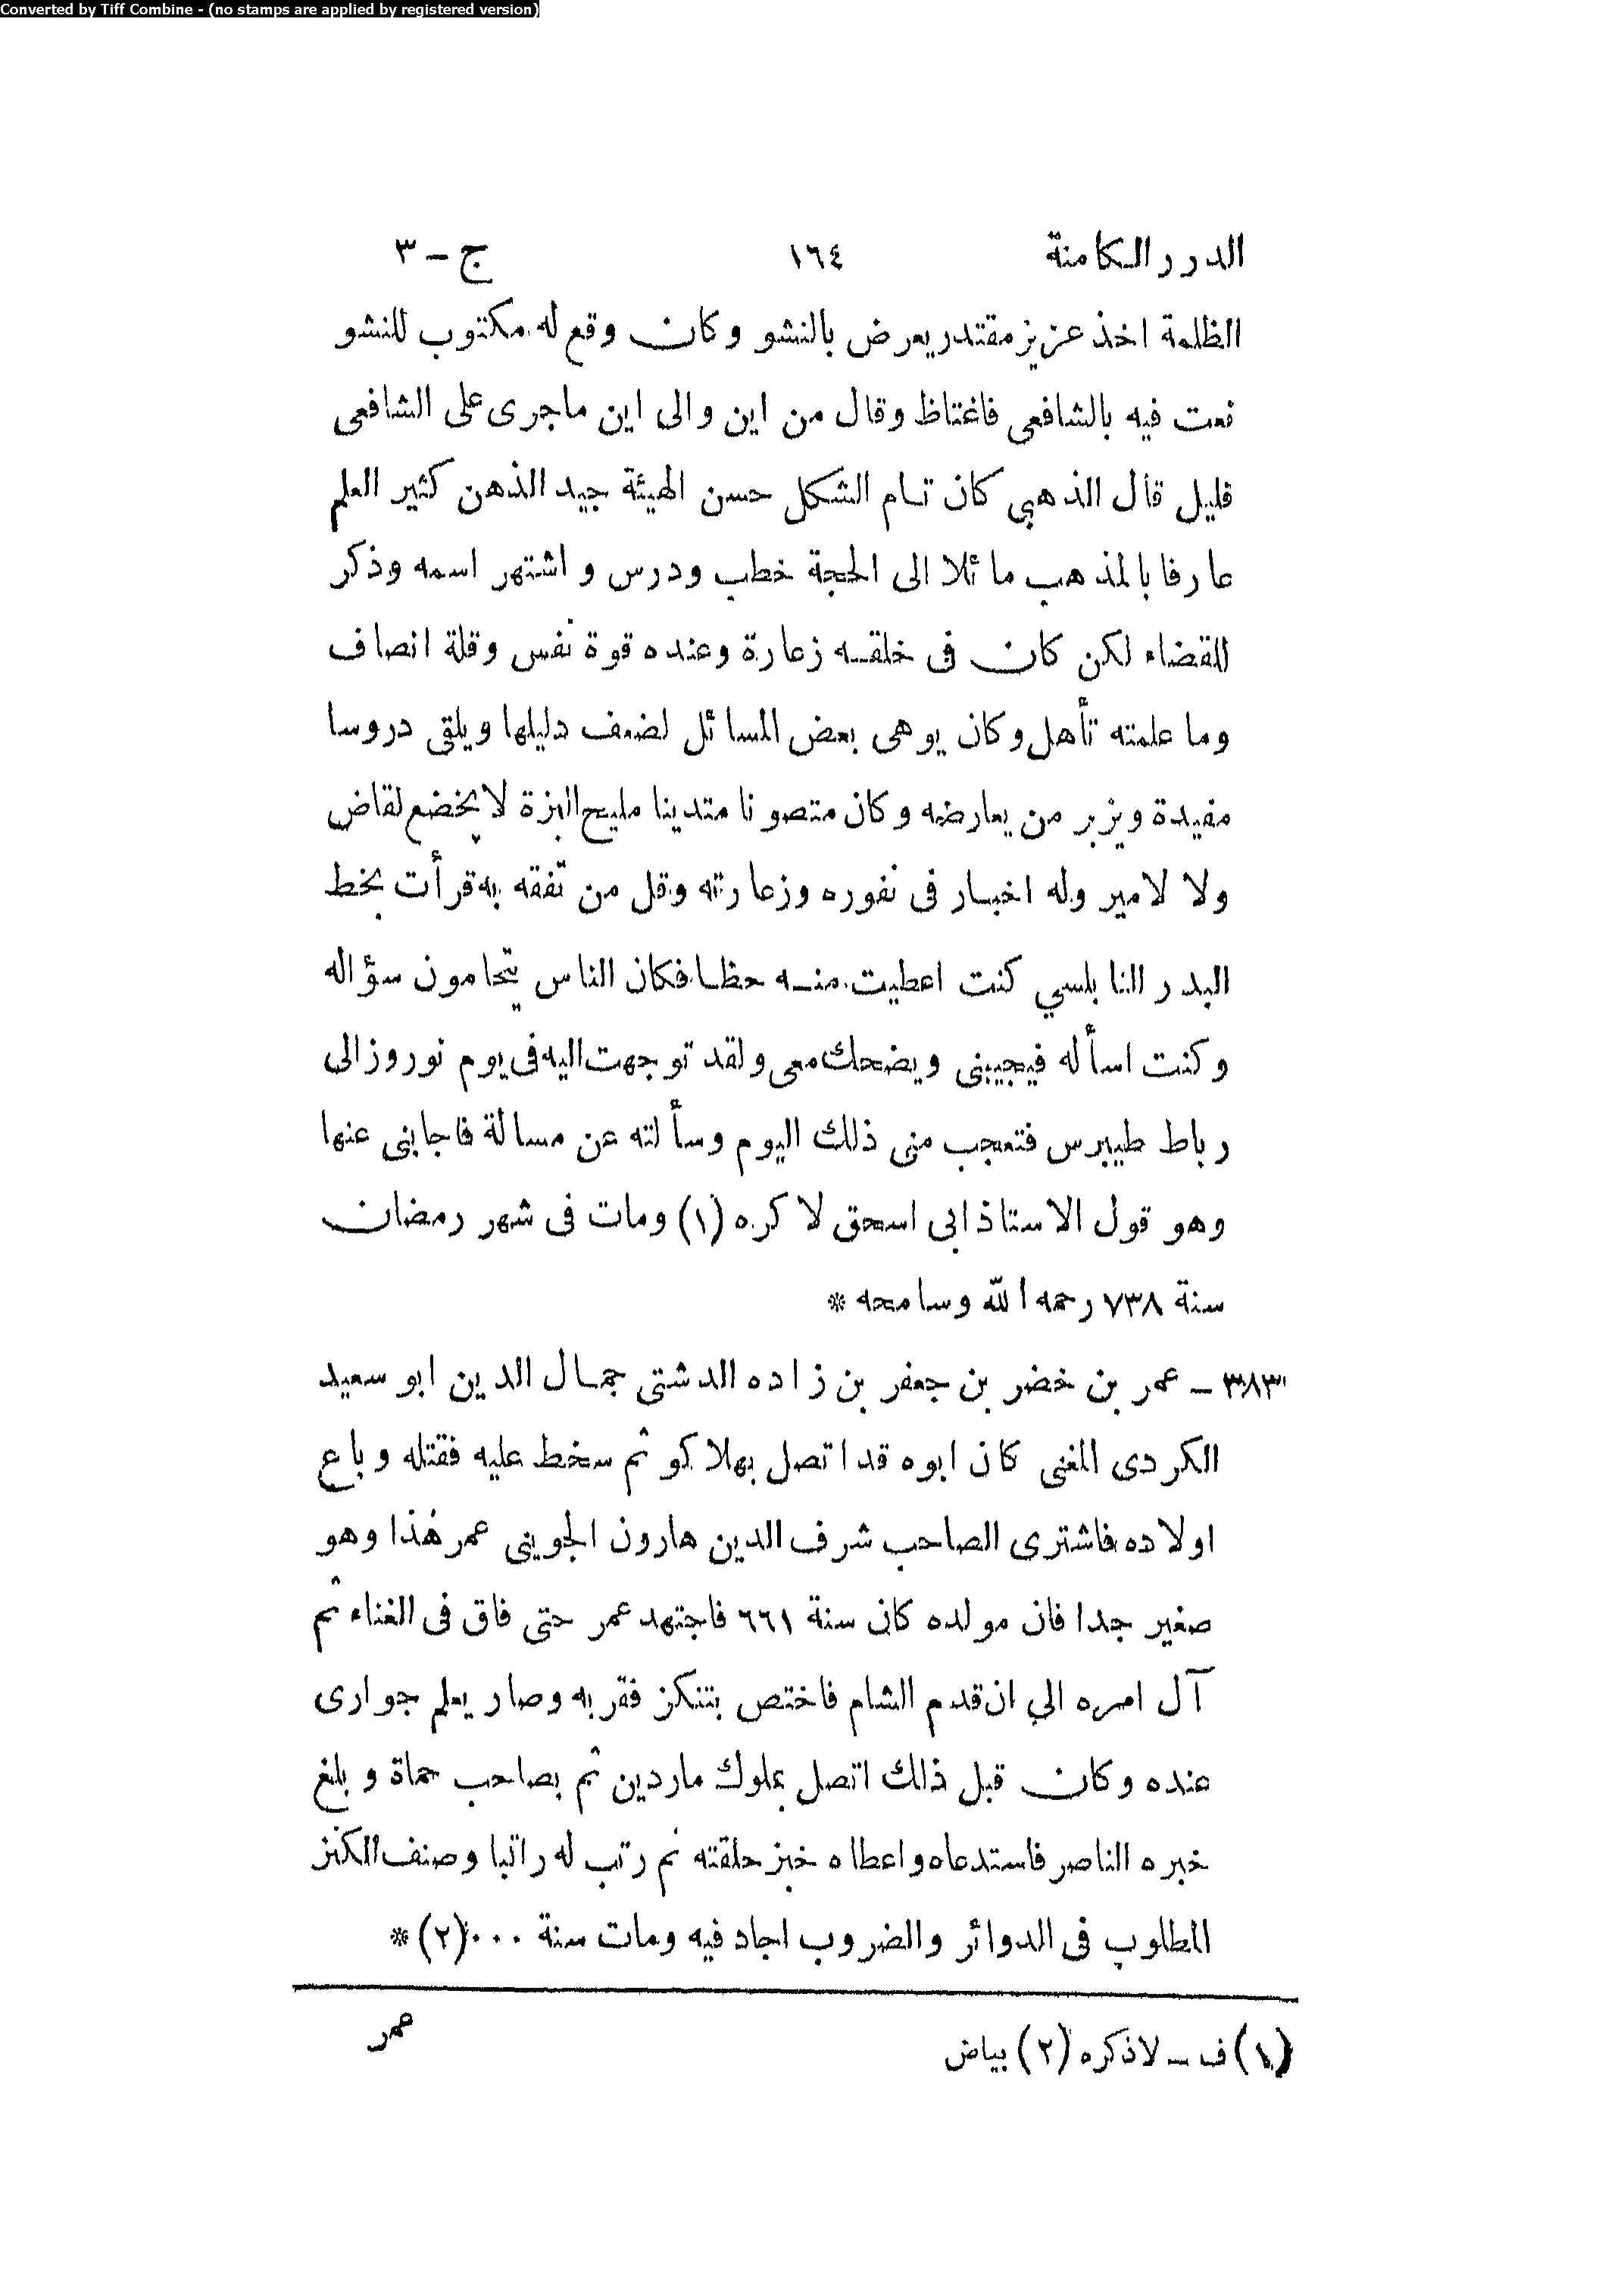 Converted by Tiff Combine - (no stamps are applied by registered version)
الدرر الكامنة ١٦٤ ج – ٣
الظلمة اخذ عزيز مقتدر يعرض بالنشو وكان وقع له مكتوب للنشو
نعت فيه بالشافعى فاغتاظ وقال من اين والى اين ماجرى على الشافعى
قليل قال الذهبي كان تام الشكل حسن الهيئة جيد الذهن كثير العلم
عارفا بالمذهب مائلا الى الحجة خطب ودرس واشتهر اسمه وذكر
للقضاء لكن كان فى خلقه زعارة وعنده قوة نفس وقلة انصاف
وما علمته تأهل وكان يوهى بعض المسائل لضعف دليلها ويلقى دروسا
مفيدة ويزبر من يعارضه وكان متصونا متدينا مليح البزة لا يخضع لقاض
ولا لامير وله اخبار فى نفوره وزعارته وقل من تفقه به قرأت بخط
البدر النابلسي كنت اعطيت منه حظا فكان الناس يتحامون سؤاله
وكنت اسأله فيجيبنى ويضحك معى ولقد توجهت اليه فى يوم نوروز الى
رباط طيبرس فتعجب منى ذلك اليوم وسألته عن مسالة فاجابنى عنها
وهو قول الاستاذ ابى اسحق لا كره (١) ومات فى شهر رمضان
سنة ٧٣٨ رحمه الله وسامحه *
٣٨٣ – عمر بن خضر بن جعفر بن زاده الدشتى جمال الدين ابو سعيد
الكردى المغنى كان ابوه قد اتصل بهلاكو ثم سخط عليه فقتله وباع
اولاده فاشترى الصاحب شرف الدين هارون الجوينى عمر هذا وهو
صغير جدا فان مولده كان سنة ٦٦١ فاجتهد عمر حتى فاق فى الغناء ثم
آل امره الي ان قدم الشام فاختص بتنكز فقربه وصار يعلم جوارى
عنده وكان قبل ذلك اتصل بملوك ماردين ثم بصاحب حماة وبلغ
خبره الناصر فاستدعاه واعطاه خبز حلقته ثم رتب له راتبا وصنف الكنز
المطلوب فى الدوائر والضروب اجاد فيه ومات سنة ... (٢) *
(١) ف – لاذكره (٢) بياض
عمر